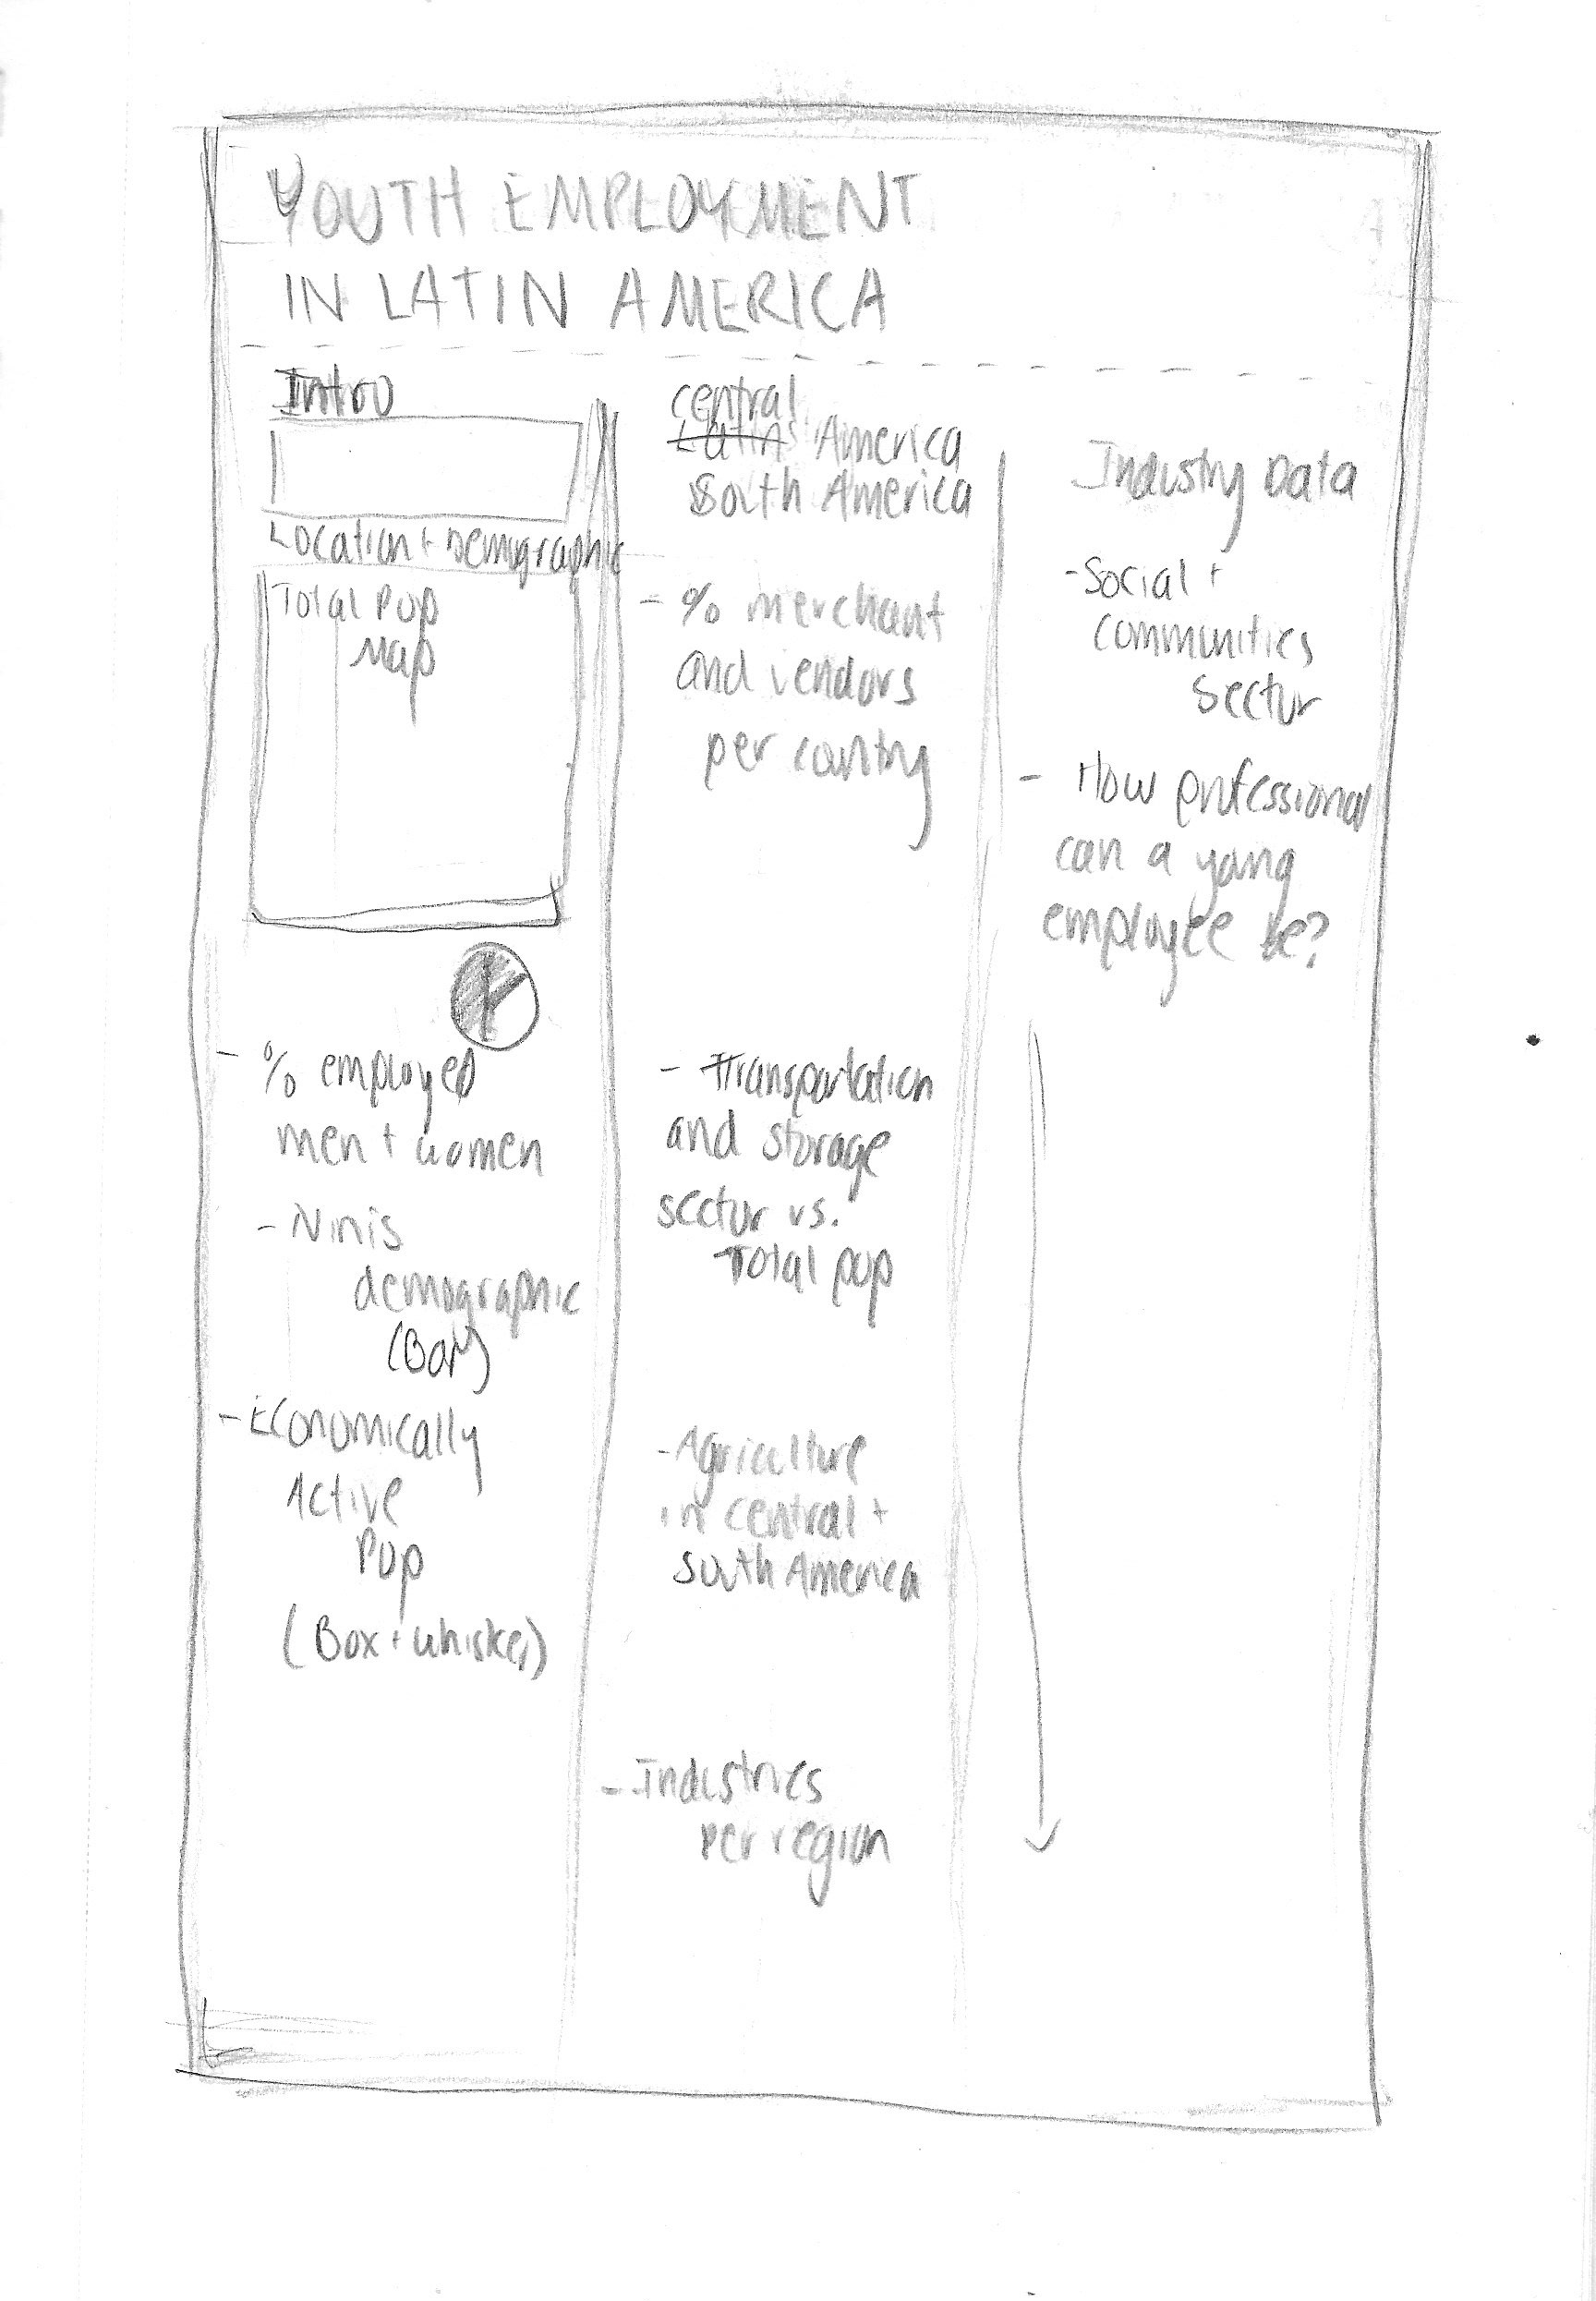 YOUTH EMPLOYMENT
IN LATIN AMERICA
Intro
Location + Demographic
Total Pop
Map
- % employed
men + women
- Ninis
demographic
(Bar)
- Economically
Active
Pop
(Box + whisker)
central
Latin America
South America
- % merchant
and vendors
per country
- Transportation
and storage
sector vs.
Total pop
- Agriculture
in central +
south America
- Industries
per region
Industry Data
- Social +
communities
sector
- How professional
can a young
employee be?